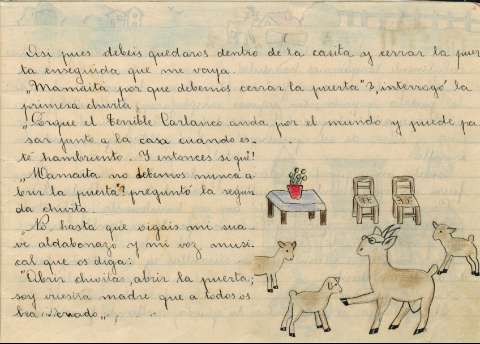 Asi pues debeis quedaros dentro de la casita y cerrar la puer
ta enseguida que me vaya.
„Mamaita por que debemos cerrar la puerta"?, interrogó la
primera chivita,
„Porque el Terrible Carlanco anda por el mundo y puede pa
sar junto a la casa cuando es-
té hambriento. Y entonces si que!
„Mamaita no debemos nunca a-
brir la puerta"? preguntó la segun
da chivita.
„No, hasta que oigais mi sua
ve aldabonazo y mi voz musi-
cal que os diga:
"Abrir chivitas, abrir la puerta;
soy vuestra madre que a todos os